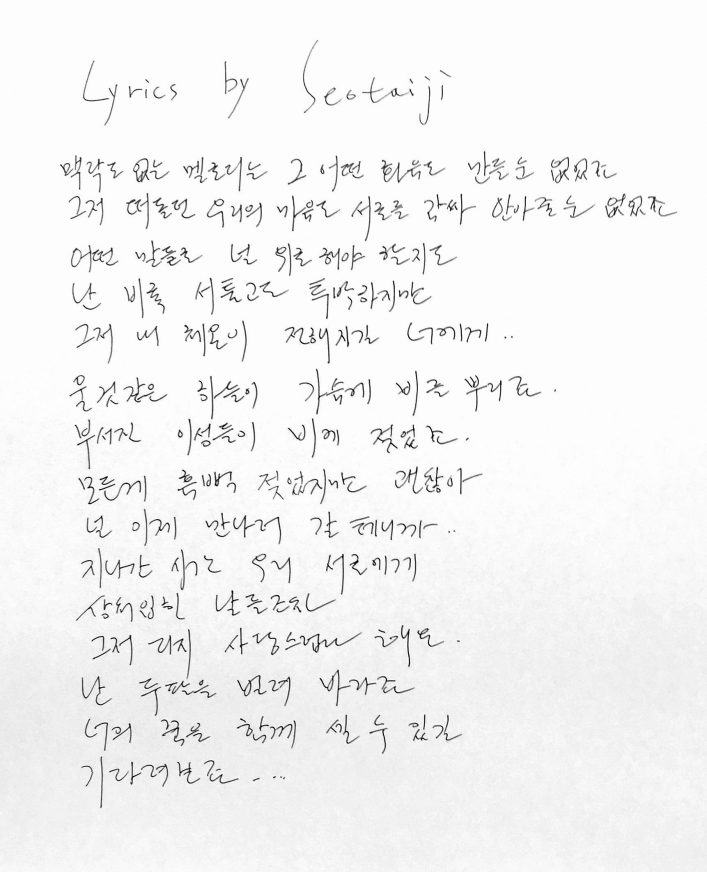 Lyrics by Seotaiji
맥락도 없는 멜로디는 그 어떤 화음도 만들 순 없었죠
그저 떠돌던 우리의 마음도 서로를 감싸 안아줄 순 없었죠
어떤 말들로 널 위로해야 할지도
난 비록 서툴고도 투박하지만
그저 내 체온이 전해지길 너에게..
울것같은 하늘이 가슴에 비를 뿌리죠.
부서진 이성들이 비에 젖었죠.
모든게 흠뻑 젖었지만 괜찮아
널 이제 만나러 갈 테니까..
지나간 시간 우리 서로에게
상처입힌 날들조차
그저 다지 사랑스럽다 해도.
난 두팔을 벌려 바라죠
너의 꿈을 함께 쓸 수 있길
기다려보죠....